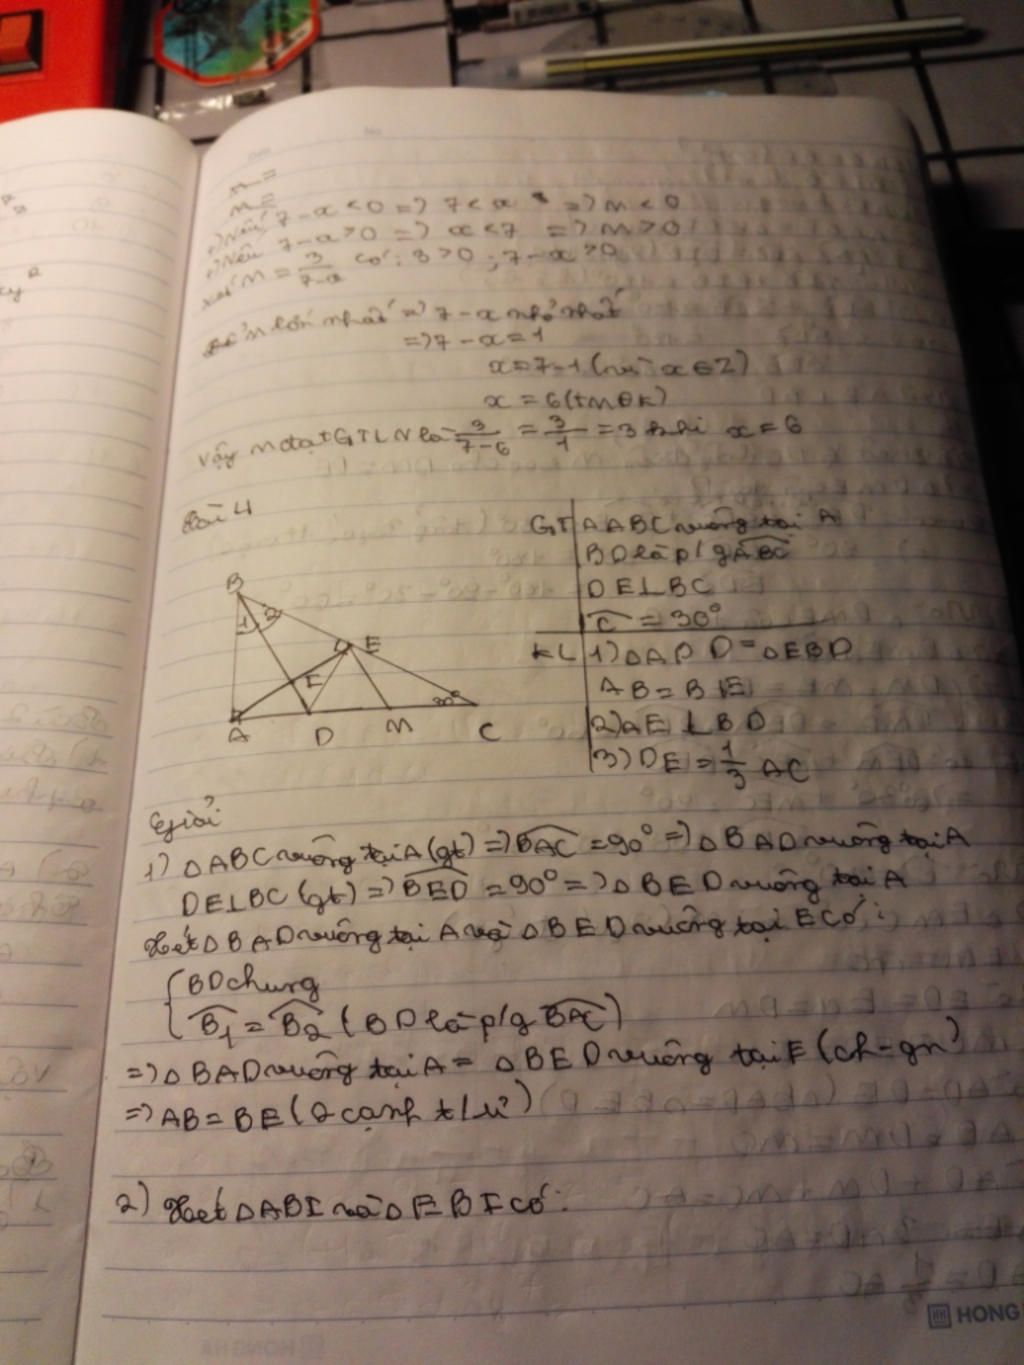 m =
m =
+) Nếu 7 - x < 0 => 7 < x => m < 0
+) Nếu 7 - x > 0 => x < 7 => m > 0
xét M = 3/7-x có: 3 > 0 ; 7 - x > 0
lớn nhất => 7 - x nhỏ nhất
=> 7 - x = 1
x = 7 - 1 (vì x ∈ Z)
x = 6 (TMĐK)
Vậy M đạt GTLN là 3/7-6 = 3/1 = 3 khi x = 6
Bài 4
GT ΔABC vuông tại A
BD là p/g ABC
DE ⊥ BC
C = 30°
KL 1) ΔABD = ΔEBD
AB = BE
2) AE ⊥ BD
3) DE = 1/3 AC
B
1 2
E
I
30°
A D M C
Giải
1) ΔABC vuông tại A (gt) => BAC = 90° => ΔBAD vuông tại A
DE ⊥ BC (gt) => BED = 90° => ΔBED vuông tại A
Xét ΔBAD vuông tại A và ΔBED vuông tại E có:
BD chung
B1 = B2 (BD là p/g BAC)
=> ΔBAD vuông tại A = ΔBED vuông tại E (ch-gn)
=> AB = BE (2 cạnh t/ư)
2) Xét ΔABI và ΔEBI có:
HONG